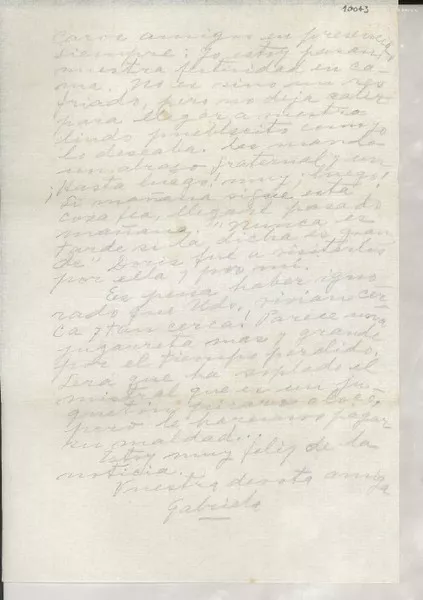 10043
Caros amigos en presencia
siempre: Yo estoy pasando
nuestra festividad en ca-
ma. No es sino un res-
friado, pero no deja salir
para llegar a vuestro
lindo pueblecito como yo
lo deseaba. Les mando
un abrazo fraternal y un
¡Hasta luego! muy luego!
Si mañana sigue esta
cosa fea, llegaré pasado
mañana. "Nunca es
tarde si la dicha es gran
de" Doris fue a visitarles
por ella y por mí.
Es pena haber igno-
rado que Uds. vivían cer
ca y tan cerca! Parece una
jugarreta mas y grande
por el tiempo perdido.
Será que ha soplado el
mistral que es un
pícaro
pero le haremos pagar
su maldad.
Estoy muy feliz de la
noticia.
Vuestra devota amiga
Gabriela